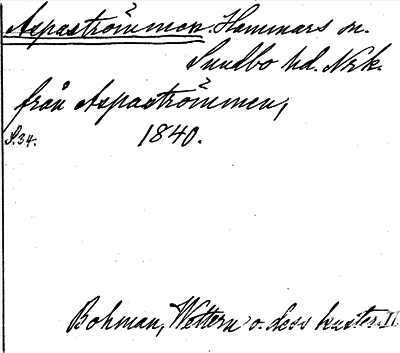 Aspaströmmen. Hammars sn.
Sundbo hd. Nrk.
från Aspaströmmen,
S. 34. 1840.
Bohman, Wettern o. dess kuster. II